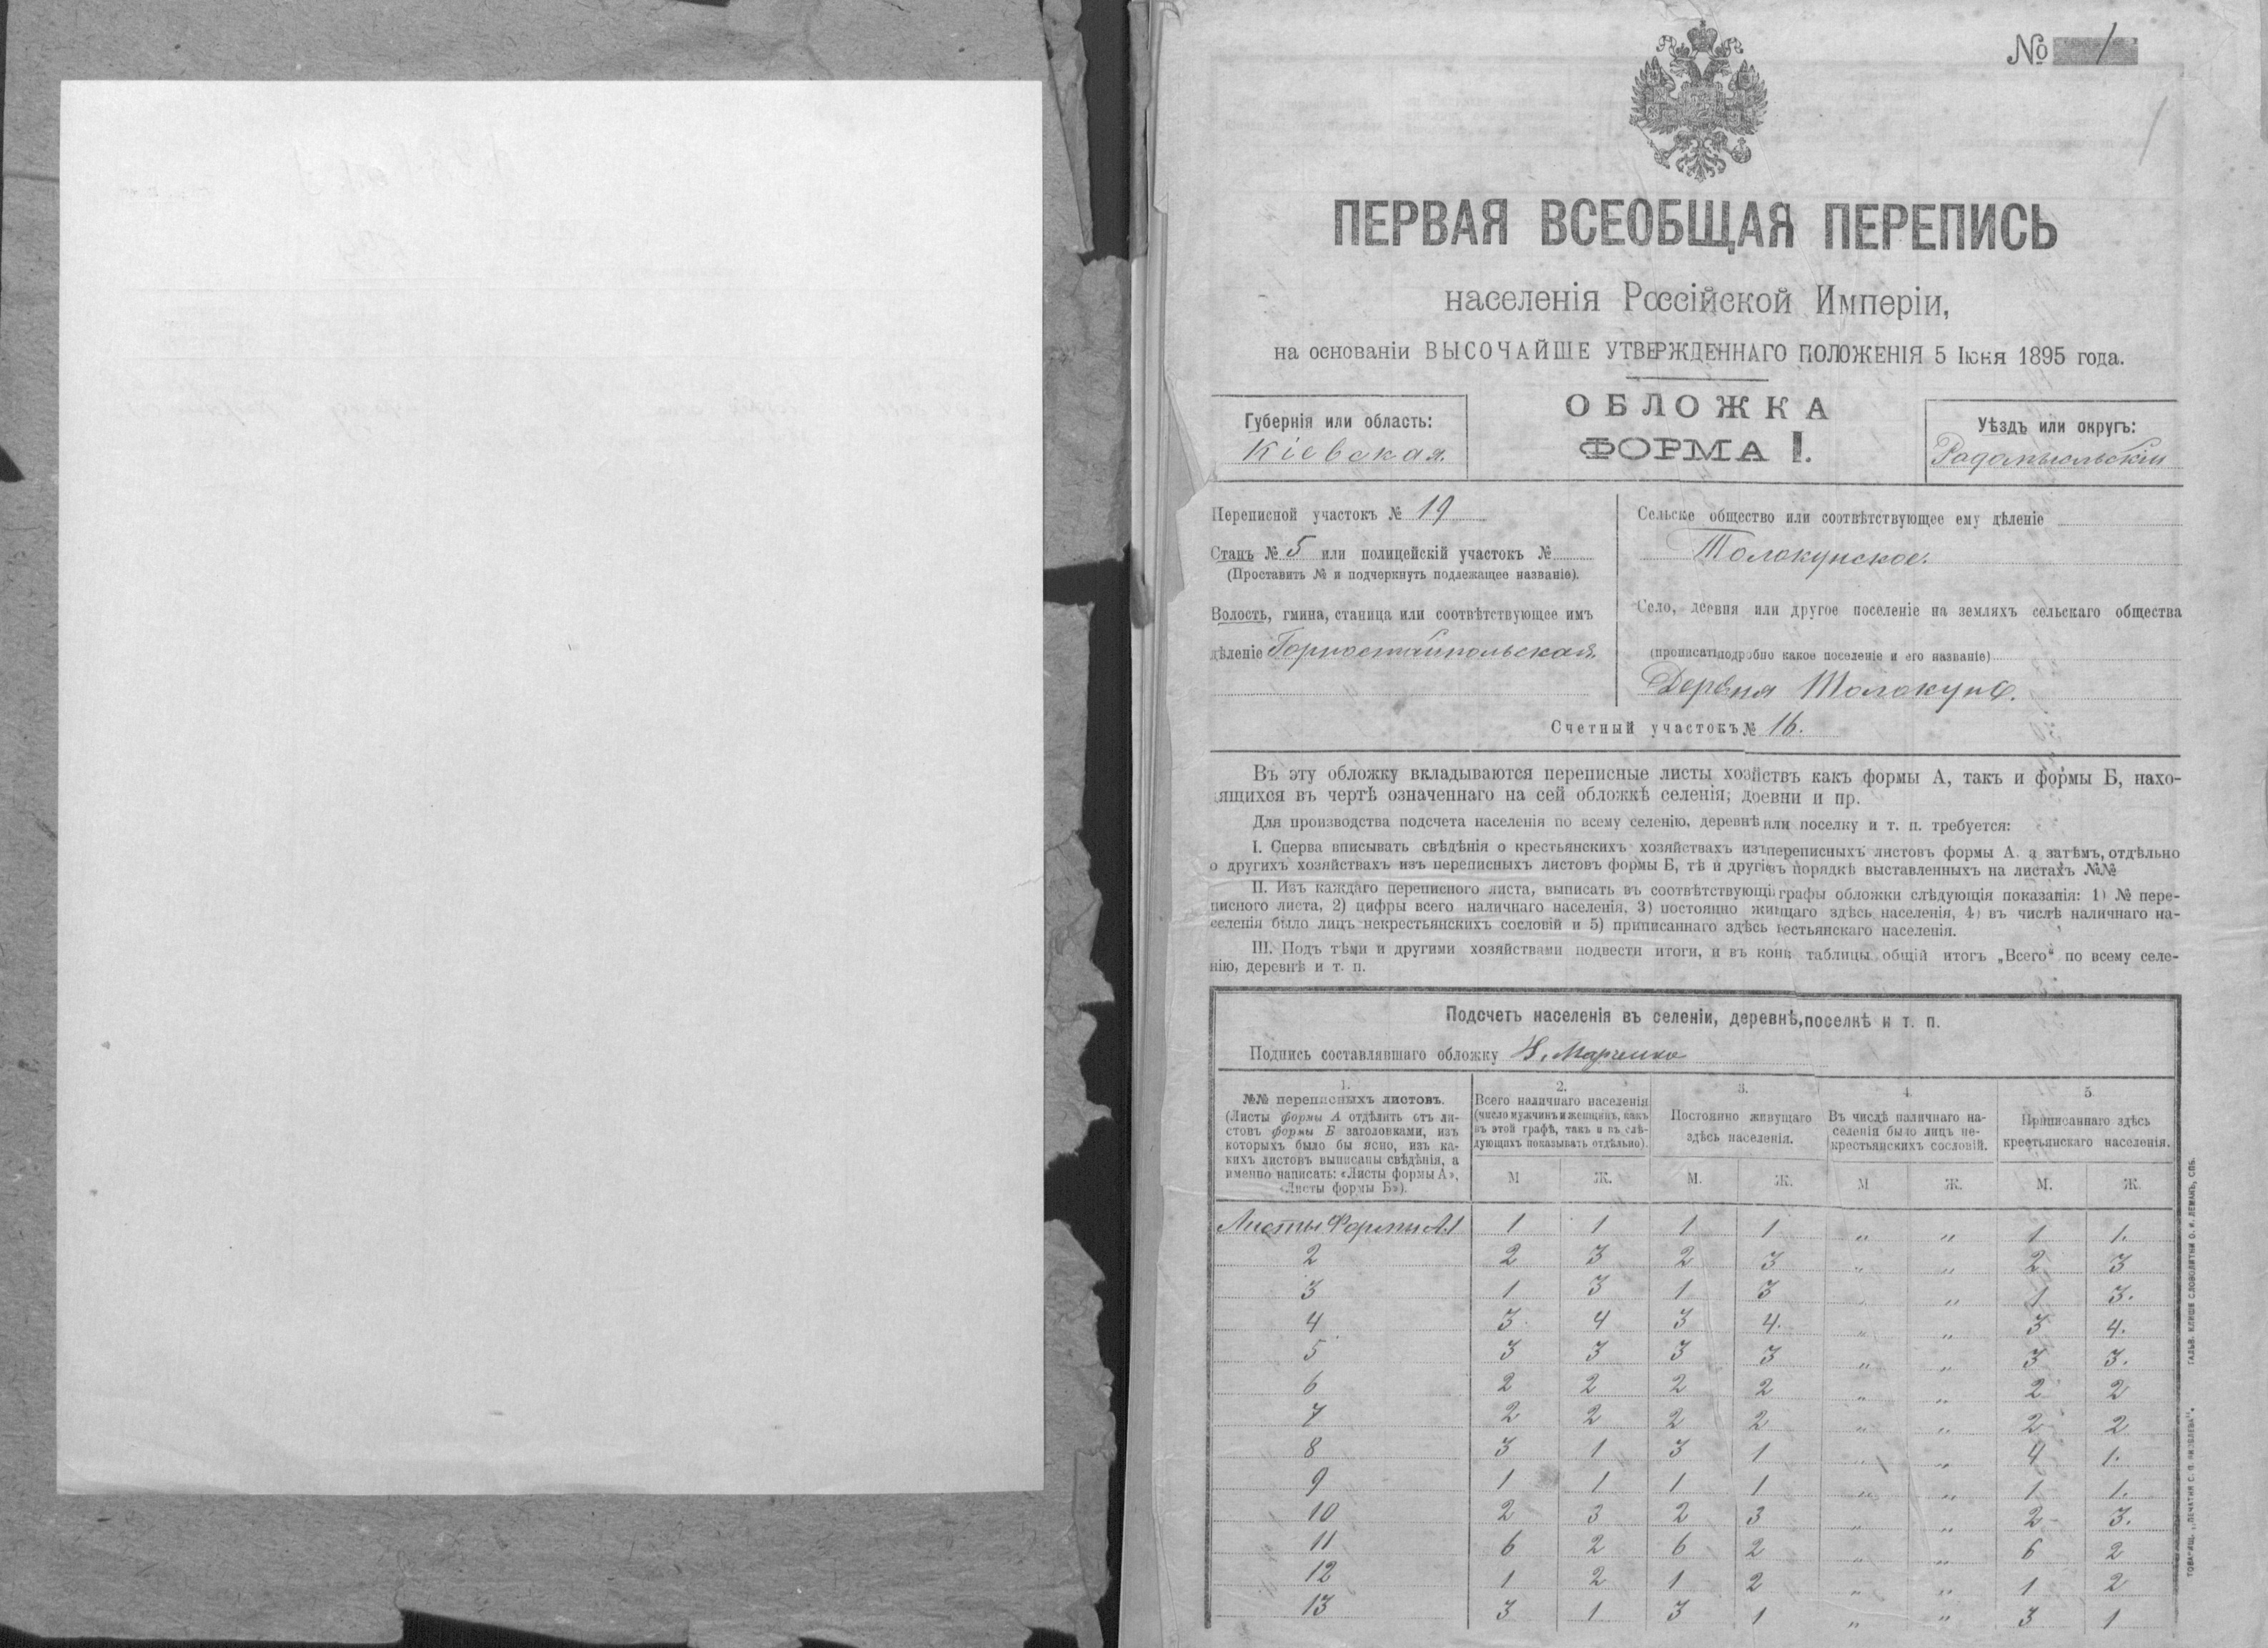 № 1
ПЕРВАЯ ВСЕОБЩАЯ ПЕРЕПИСЬ
населенія Россійской Имперіи,
на основаніи ВЫСОЧАЙШЕ УТВЕРЖДЕННАГО ПОЛОЖЕНІЯ 5 Іюня 1895 года.
ОБЛОЖКА
ФОРМА I.
Губернія или область:
Кіевская.
Уѣздъ или округъ:
Радомысльскій
Переписной участокъ № 19
Станъ № 5 или полицейскій участокъ №
(Проставить № и подчеркнуть подлежащее названіе).
Волость, гмина, станица или соотвѣтствующее имъ
дѣленіе Горностайпольская
Сельске общество или соотвѣтствующее ему дѣленіе
Толокунское.
Село, деевня или другое поселеніе на земляхъ сельскаго общества
(прописатьподробно какое поселеніе и его названіе)
Деревня Толокунь.
Счетный участокъ № 16.
Въ эту обложку вкладываются переписные листы хозйствъ какъ формы А, такъ и формы Б, нахо-
ящихся въ чертѣ означеннаго на сей обложкѣ селенія, доевни и пр.
Для производства подсчета населенія по всему селенію, деревнѣ или поселку и т. п. требуется:
I. Сперва вписывать свѣдѣнія о крестьянскихъ хозяйствахъ изъпереписныхъ листовъ формы А. а затѣмъ, отдѣльно
о другихъ хозяйствахъ изъ переписныхъ листовъ формы Б, тѣ и другіевъ порядкѣ выставленныхъ на листахъ №№
II. Изъ каждаго переписного листа, выписать въ соотвѣтствующі графы обложки слѣдующія показанія: 1) № пере-
писного листа, 2) цифры всего наличнаго населенія, 3) постоянно живщаго здѣсь населенія, 4) въ числѣ наличнаго на-
селенія было лицъ некрестьянскихъ сословій и 5) приписаннаго здѣсь естьянскаго населенія.
III. Подъ тѣми и другими хозяйствами подвести итоги, и въ конц таблицы общій итогъ „Всего“ по всему селе-
нію, деревнѣ и т. п.
Подсчетъ населенія въ селеніи, деревнѣ, поселкѣ и т. п.
Подпись составлявшаго обложку Н. Марченко
1.
№№ переписныхъ листовъ.
(Листы формы А отдѣлить отъ ли-
стовъ формы Б заголовками, изъ
которыхъ было бы ясно, изъ ка-
кихъ листовъ выписаны свѣдѣнія, а
именно написать: «Листы формы А»,
«Листы формы Б»).
2.
Всего наличнаго населенія
(число мужчинъ и женщинъ, какъ
въ этой графѣ, такъ и въ слѣ-
дующихъ показывать отдѣльно).
3.
Постоянно живущаго
здѣсь населенія.
4.
Въ числѣ наличнаго на-
селенія было лицъ не-
крестьянскихъ сословій.
5
Приписаннаго здѣсь
крестьянскаго населенія.
М Ж. М. Ж. М Ж. М. Ж.
Листы Формы А.1 1 1 1 1 „ „ 1 1.
2 2 3 2 3 „ „ 2 3
3 1 3 1 3 „ „ 1 3.
4 3 4 3 4. „ „ 3 4.
5 3 3 3 3 „ „ 3 3.
6 2 2 2 2 „ „ 2 2
7 2 2 2 2 „ „ 2 2
8 3 1 3 1 „ „ 4 1.
9 1 1 1 1 „ „ 1 1.
10 2 3 2 3 „ „ 2 3.
11 6 2 6 2 „ „ 6 2
12 1 2 1 2 „ „ 1 2
13 3 1 3 1 „ „ 3 1